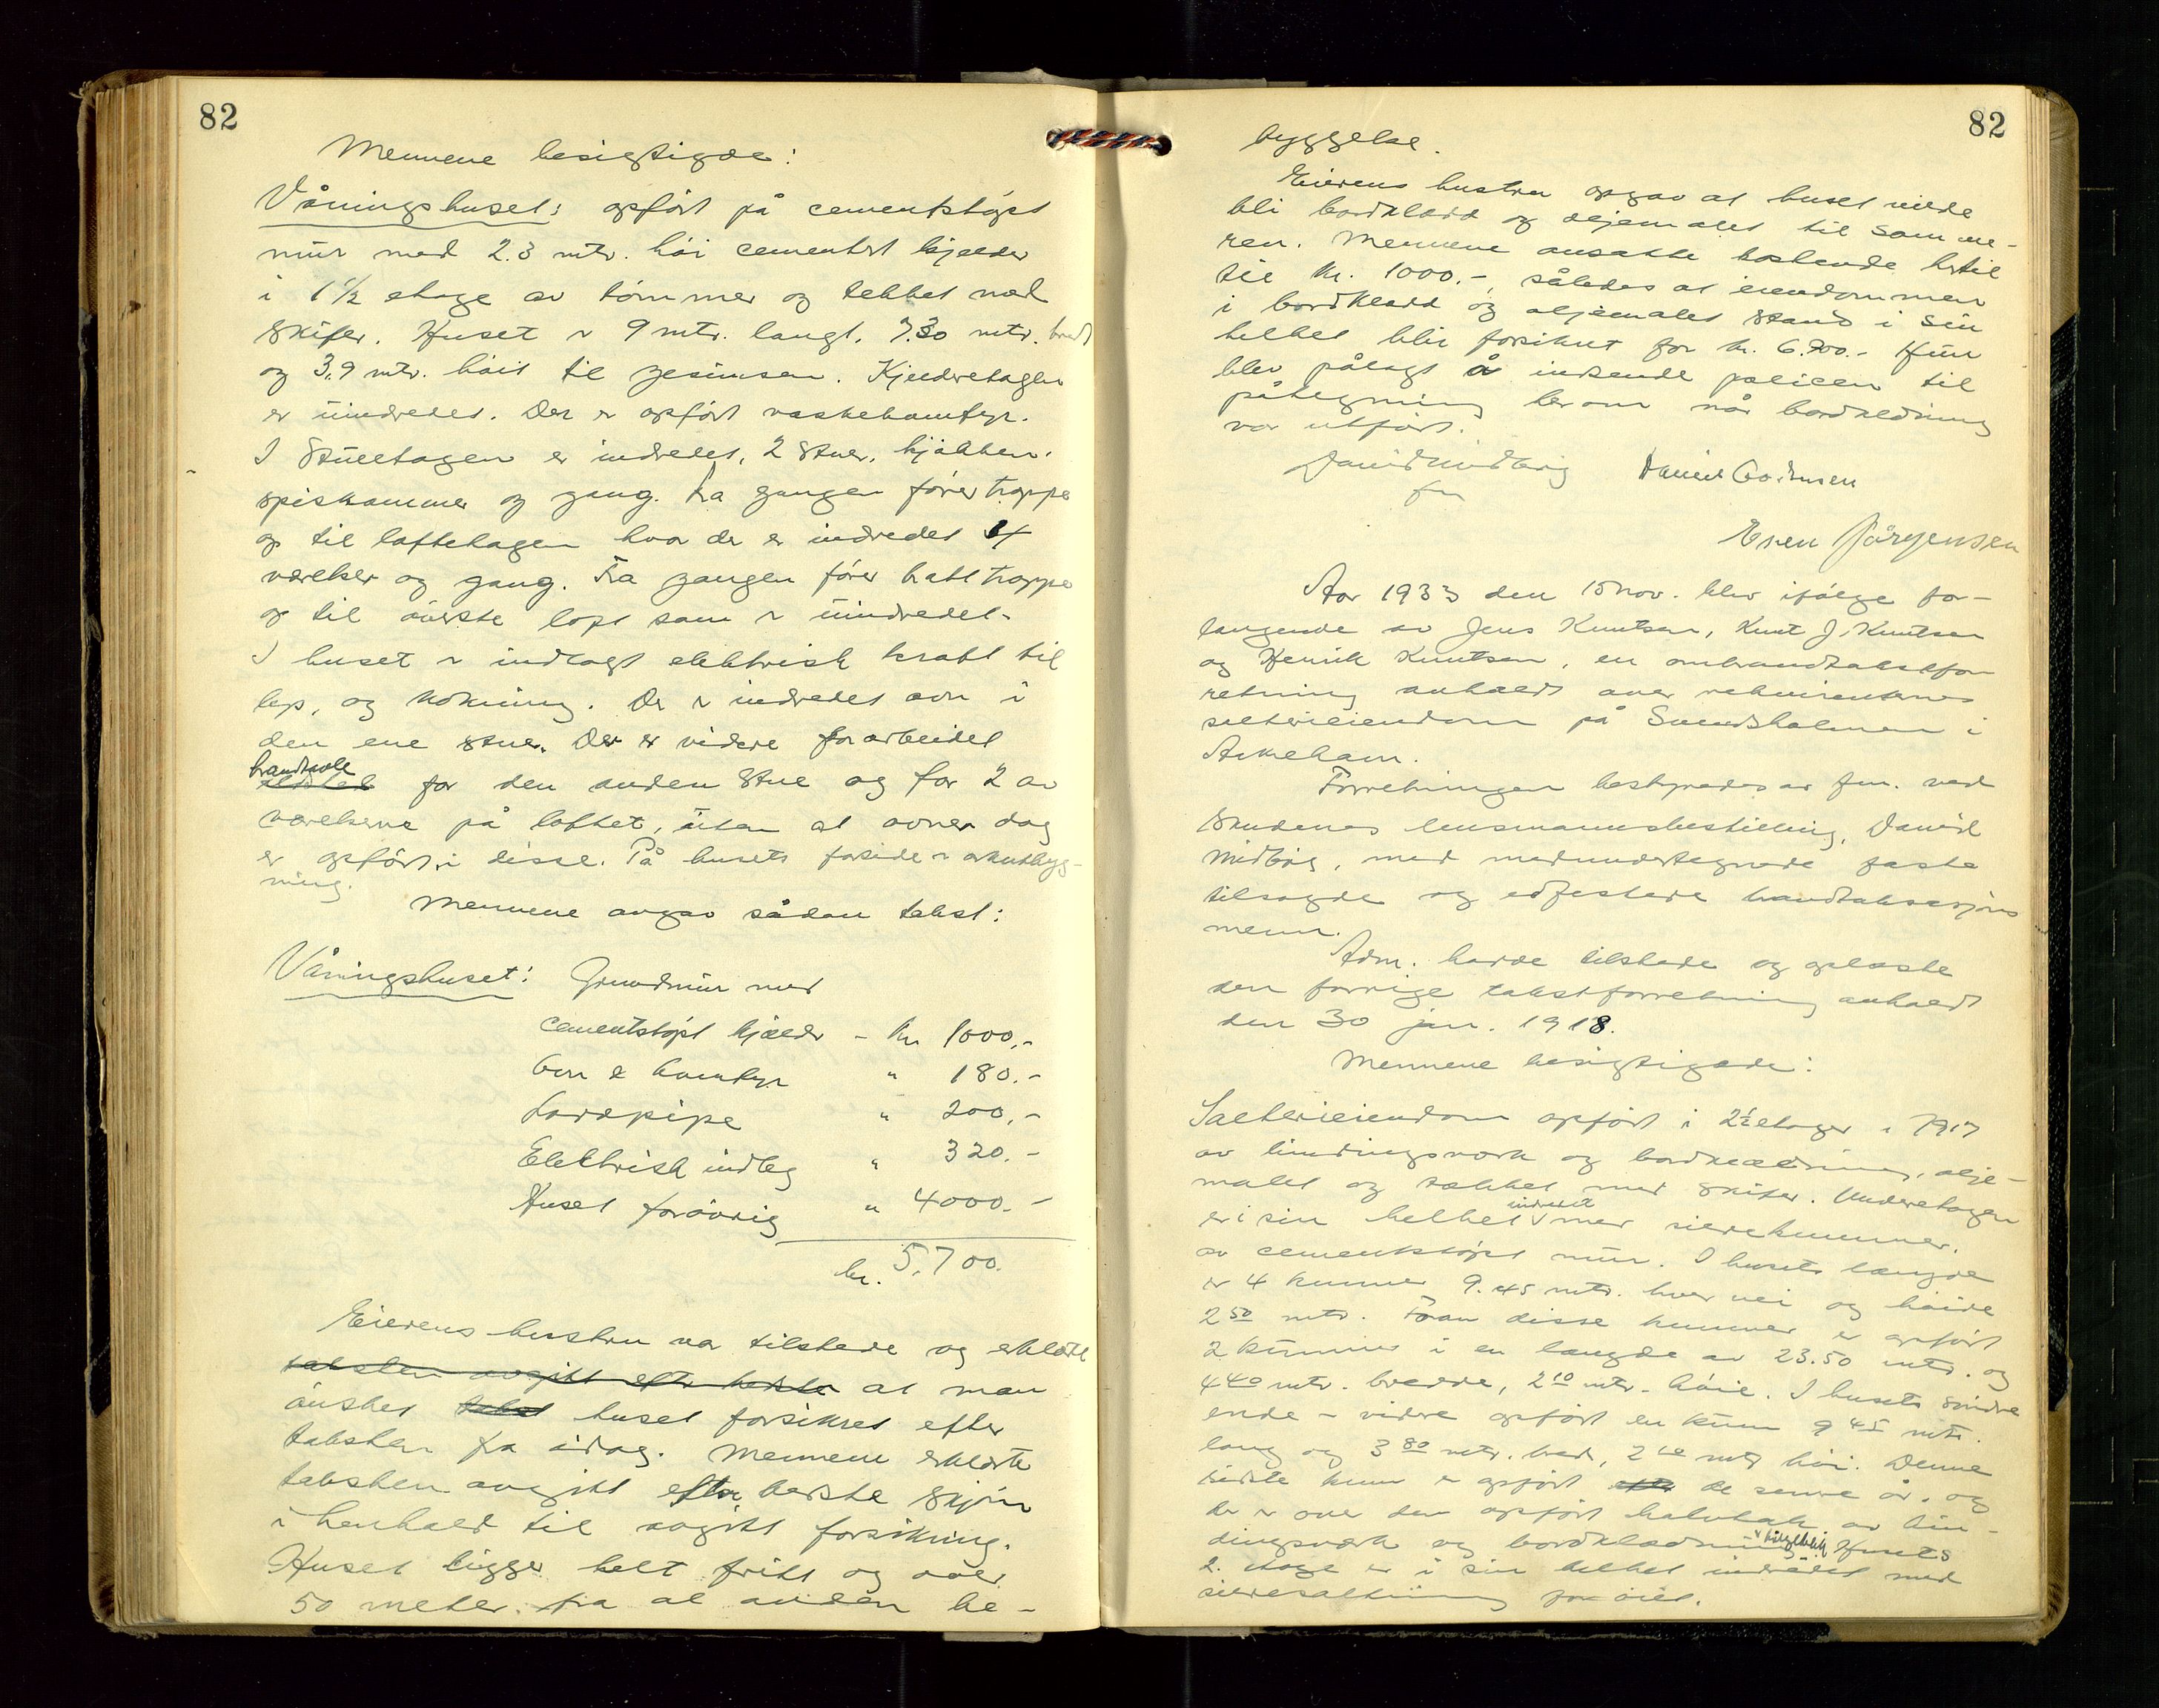 82
Mennene besigtigde:
Våningshuset: opført på cementstøpt
mur med 2.3 mtr. høi cementert kjelder
i 1½ etage av tømmer og tekket med
skifer. Huset er 9 mtr. langt, 7.30 mtr. bredt
og 3,9 mtr. høit til gesimsen. Kjelderetagen
er uindredet. Der er opført vaskekomfyr.
I stueetagen er indredet, 2 stuer, kjøkken,
spiskammer og gang. Fra gangen fører trappe
op til loftetagen hvor der er indredet 4
værelser og gang. Fra gangen fører bratt trappe
op til øverste loft som er uindredet.
I huset er indlagt elektrisk kraft til
lys, og kokning. Der er indredet ovn i
den ene stue. Der er videre forarbeidet
brandmole
for den anden stue og for 2 av
værelserne på loftet, uten at ovner dog
er opført i disse. På husets forside er arkutbyg-
ning.
Mennene avgav sådan takst:
Våningshuset: Grundmur med
cementstøpt kjælder - kr 1000,-
Ovn & komfyr " 180.-
Lovdpipe " 200,-
Elektrisk indleg " 320.-
Huset forøvrig " 4000.-
kr. 5.700.
Eierens hustru var tilstede og erklærte
taksten avgitt efter beste at man
ønsket takst huset forsikret efter
taksten fra idag. Mennene erklærte
taksten avgitt efter beste skjøn
i henhold til avgitt forsikring.
Huset ligger helt fritt og over
50 meter fra al anden be-
82
byggelse.
Eierens hustru opgav at huset vilde
bli bordklædd og oljemalet til somme-
ren. Mennene ansatte kostende hertil
til kr. 1000.-, således at eiendommen
i bordklædd og oljemalet stand i sin
helhet blir forsikret for kr. 6.700.- Hun
blev pålagt å indsende policen til
påtegning herom når bordkledning
var utført.
David Midbøe Daniel
fm
Sven Jørgensen
Aar 1933 den 15 nov. blev ifølge for-
langende av Jens Knutsen, Knut J. Knutsen
og Henrik Knutsen, en ombrandtakstfor
retning avholdt over rekvirentenes
salterieiendom på Svendsholmen i
Aakehavn.
Forretningen bestyredes av fm. ved
Skudenes lensmannsbestilling, David
Midbøe, med medundertegnede faste
tilsagde og edfestede brandtaksasjons
menn.
Adm. havde tilstede og oplæste
den forrige takstforretning avholdt
den 30 jan. 1918.
Mennene besigtigede:
Salterieiendom opført i 2½ etager i 1917
av bindingsverk og bordklædning, olje-
malet og tækket med skifer. Underetagen
indredet
er i sin helhet med sildekummer.
av cementstøpt mur. I husets længde
er 4 kummer 9.45 mtr. hver vei og høide
2 50 mtr. Foran disse kummer er opført
2 kummer i en længde av 23.50 mtr. og
4 40 mtr. bredde, 2 10 mtr. høie. I husets søndre
ende er videre opført en kum 9 45 mtr.
lang og 3 80 mtr. bred, 2 10 mtr høi. Denne
sidste kum er opført de senere år, og
der er over den opført halvtak av bin-
dingsverk og bordklædning Husets
2. etage er i sin helhet indredet med
sildesaltning for øiet.